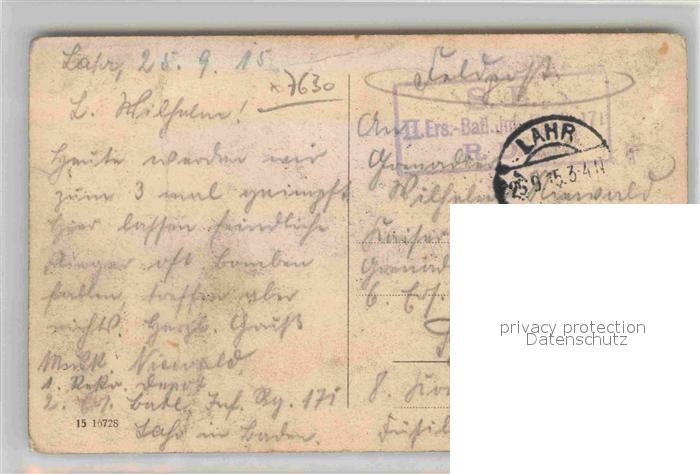 Lahr, 25. 9. 15.
x7630
L. Wilhelm!
Heute werden wir
zum 3 mal geimpft
Hier lassen feindliche
Flieger oft Bomben
fallen, treffen aber
nichts. Herzl. Gruß
Musk. Niewald
1. Rekr. Depot
2. Ers. Batl. Inf. Rg. 171
Lahr in Baden.
15 16728
Feldpost.
S. B.
II. Ers.-Batl. 171
R.
LAHR
25.9.15.3-4N
An
Grenadier
Wilhelm Niewald
Kaiser
Grenad
6. Ers.
8.
Füsil
privacy protection
Datenschutz